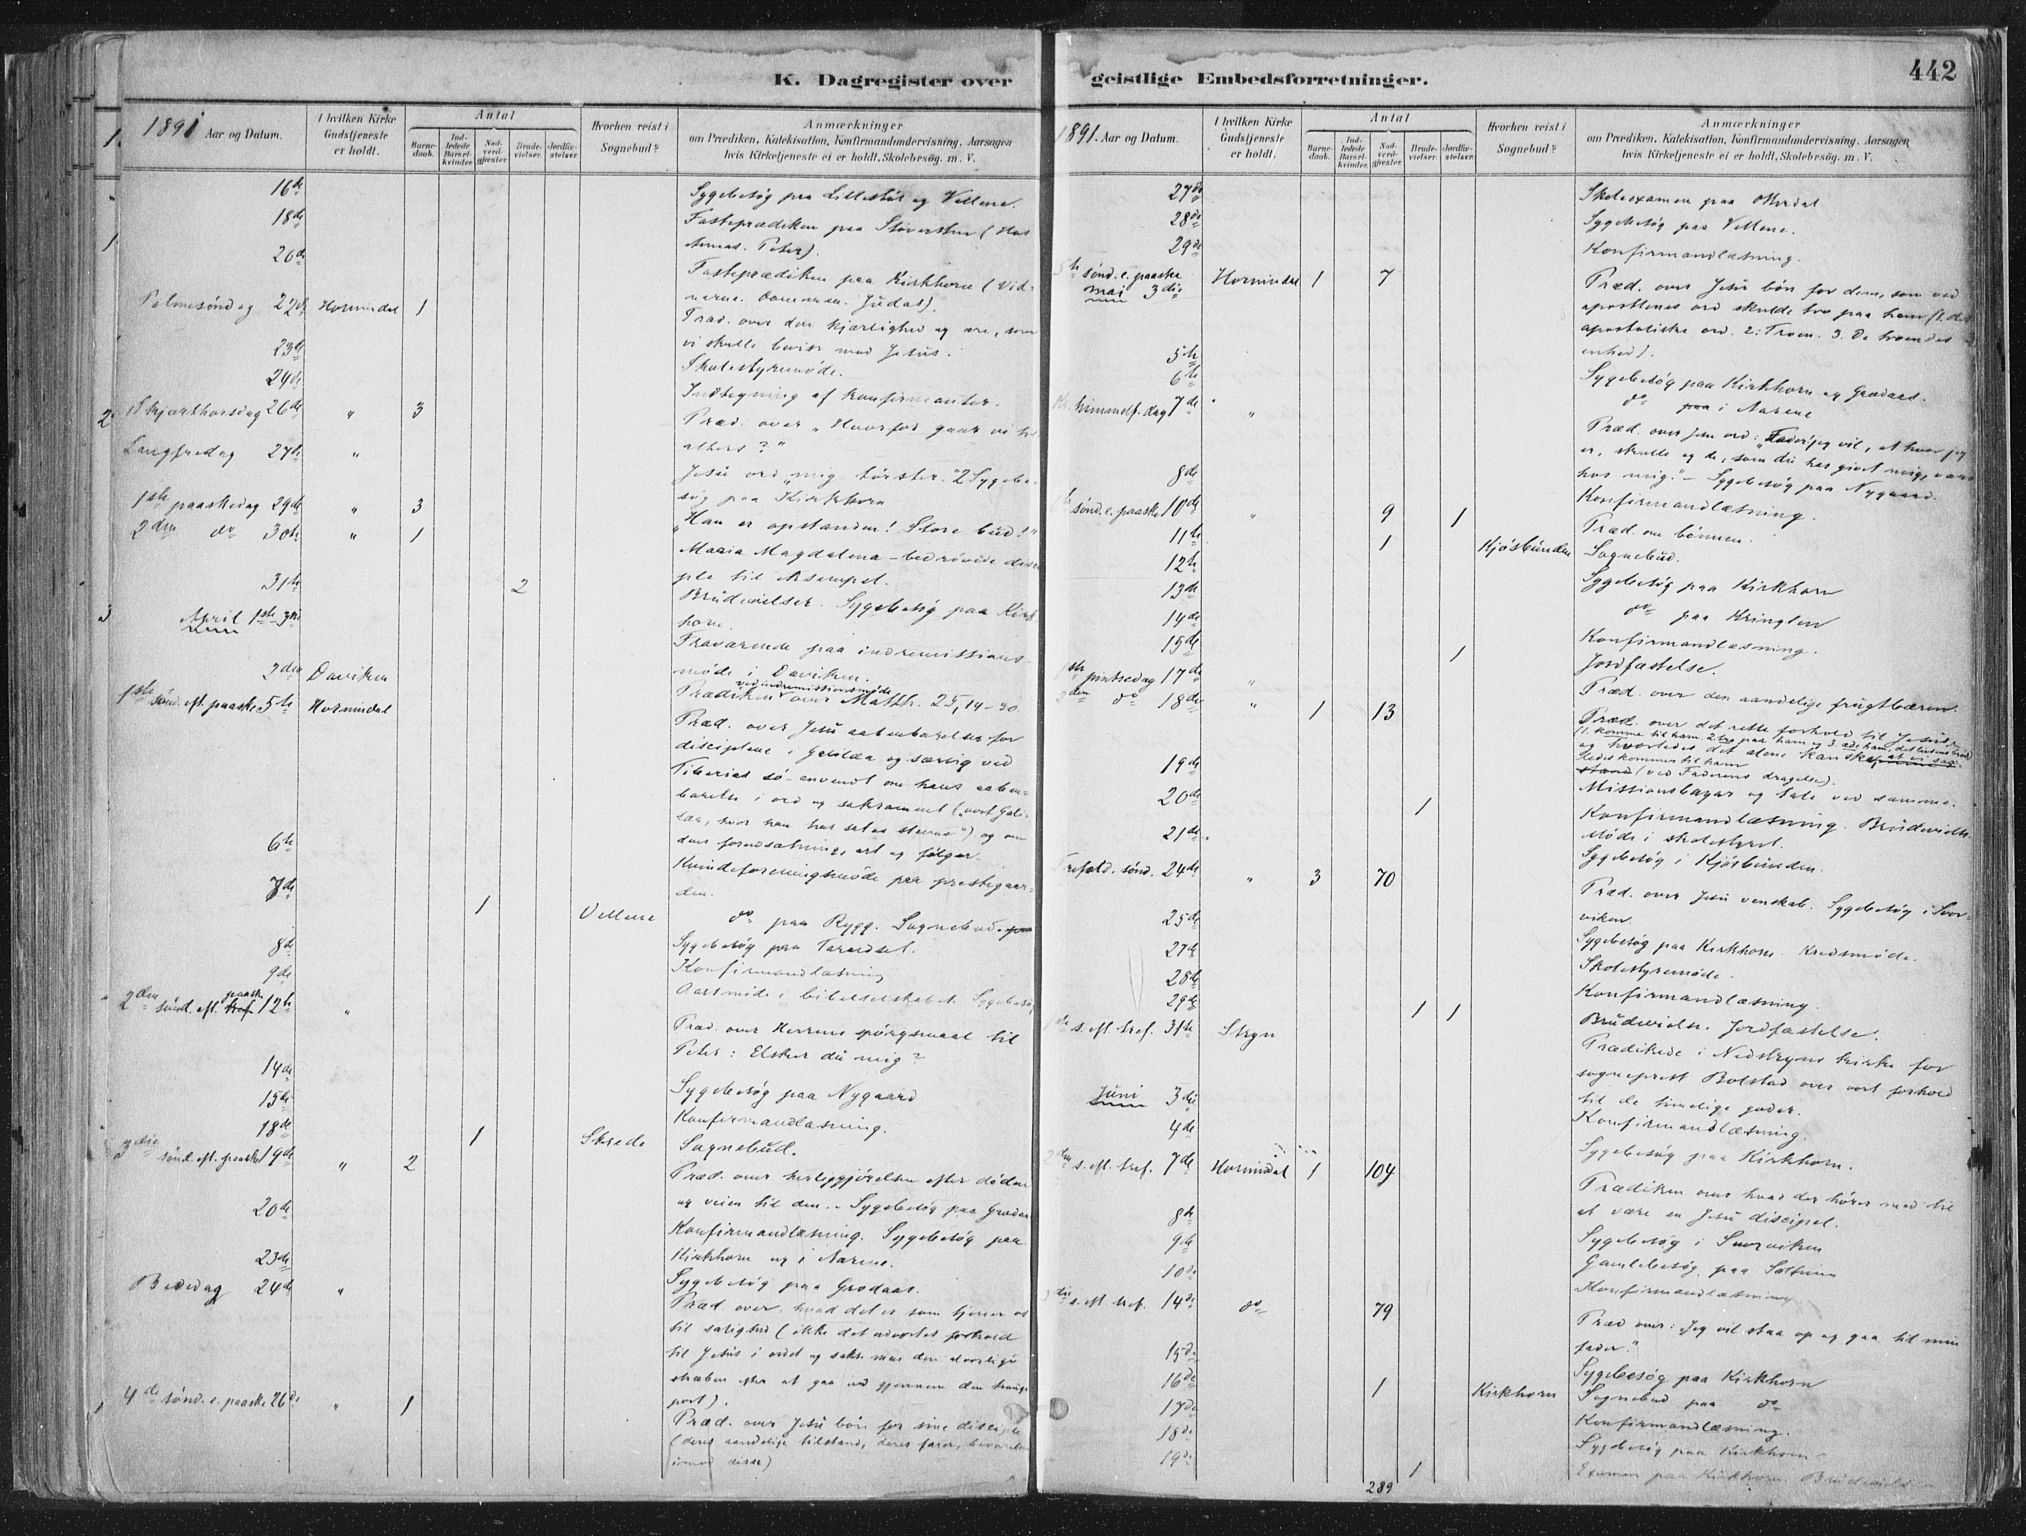 K. Dagregister over
1891 Aar og Datum.
I hvilken Kirke Gudstjeneste er holdt.
Antal
Barnedaab.
Indledede Barselkvinder.
Nadverdgjester
Brudevielser.
Jordfæstelser.
Hvorhen reist i Sognebud?
Anmærkninger
om Prædiken, Katekisation, Konfirmandundervisning, Aarsagen
hvis Kirketjeneste ei er holdt, Skolebesøg. m. V.
16de Sygebesøg paa Lillestøl og Vellene.
18de Fasteprædiken paa
Annas. Peter).
20de Fasteprædiken paa Kirkhorn (Vid-
Judas).
Palmesøndag 22de Hornindal 1 Præd. over den kjærlighed og ære, som
vi skulle bevise mod Jesus.
23de Skolestyremøde.
24de Indtegning af konfirmanter.
Skjærthorsdag 26de " 3 Præd. over "Hvorfor gaar vi til
alters?"
Langfredag 27de " Jesu ord "mig tørster." 2 Sygebe-
søg paa Kirkhorn
1ste paaskedag 29de " 3 "Han er opstanden! Store bud!"
2den do 30te " 1 Maria Magdalena - bedrøvede disci-
ple til eksempel.
31te 2 Brudevielser. Sygebesøg paa Kirk-
horn.
April 1ste-3die Fraværende paa indremissions-
møde i Daviken.
2den Daviken Prædiken ved indremissionsmøde over Matth. 25, 14-30
1ste sønd. eft. paaske 5te Hornindal Præd. over Jesu aabenbarelse for
disciplene i Galilæa og særlig ved
Tiberias sø - anvendt om hans aaben-
barelse i ord og sakrament ("vort Gali-
læa, hvor han har sat os stevne") og om
dens forudsætninge, art og følger.
6te Kvindeforeningsmøde paa prestegaar-
den.
7de 1 Vellene do paa Rygg. Sognebud.
8de Sygebesøg paa
9de Konfirmandlæsning
Aarsmøde i bibelselskabet. Sygebesøg
2den sønd. eft. paaske 12te " Præd. over Herrens spørgsmaal til
Peter: Elsker du mig?
14de Sygebesøg paa Nygaard
15de Konfirmandlæsning.
18de 1 Skrede Sognebud.
3die sønd. eft. paaske 19de " 2 Præd. over herliggjørelsen efter døden
og veien til den. - Sygebesøg paa
20de Konfirmandlæsning. Sygebesøg paa
Kirkhorn og i Navene.
23de Sygebesøg paa Grodaas.
Bededag 24de " Præd. over, hvad det er som tjener os
til salighed (ikke det udvortes forhold
til Jesus i ordet og sakr. men den alvorlige
stræben efter at gaa ind gjennem den trange
port).
4de sønd. e. paaske 26de " 1 Præd. over Jesu bøn for sine disciple
(deres aandelige tilstand, deres farer, bevarelse
imod disse)
geistlige Embedsforretninger.
442
1891. Aar og Datum.
I hvilken Kirke Gudstjeneste er holdt.
Antal
Barnedaab.
Indledede Barselkvinder.
Nadverdgjester
Brudevielser.
Jordfæstelser.
Hvorhen reist i Sognebud?
Anmærkninger
om Prædiken, Katekisation, Konfirmandundervisning, Aarsagen
hvis Kirketjeneste ei er holdt, Skolebesøg. m. V.
27de Skoleexamen paa
28de Sygebesøg paa Vellene.
29de Konfirmandlæsning.
5te sønd. e. paaske mai 3die Hornindal 1 7 Præd. over Jesu bøn for dem, som ved
apostlenes ord skulde tro paa ham (1. det
apostoliske ord. 2. Troen. 3. De troendes
enhed).
5te Sygebesøg paa Kirkhorn og Grodaas.
6te do i Navene
Kr. himmelf. dag 7de " Præd. over Jesu ord: "Fader! jeg vil, at hvor jeg
er, skulle og de, som du har givet mig, være
hos mig." - Sygebesøg paa Nygaard.
8de Konfirmandlæsning.
6te sønd. e. paaske 10de " 9 1 Præd. om bønnen.
11te 1 Kjøsbunden Sognebud.
12te Sygebesøg paa Kirkhorn
13de do paa Kringlen
14de Konfirmandlæsning.
15de 1 Jordfæstelse.
1ste pintsedag 17de " Præd. over den aandelige frugtbæren.
2den do 18de " 1 13 Præd. over det rette forhold til Jesus
(1. komme til ham. 2. tro paa ham og 3. æde ham, det livsens brød)
og hvorledes det alene kan ske, at vi saa-
ledes kommer til ham
(ved Faderens dragelse).
19de Missionsbazar og tale ved samme.
20de 1 Konfirmandlæsning. Brudevielse.
Møde i skolestyret.
21de Sygebesøg i Kjøsbunden.
Trefold. sønd. 24de " 3 70 Præd. over Jesu venskab. Sygebesøg i Svor-
viken
25de Sygebesøg paa Kirkhorn. Kredsmøde.
27de Skolestyremøde.
28de Konfirmandlæsning.
29de 1 1 Brudevielse. Jordfæstelse.
1ste s. eft. tref. 31te Stryn Prædikede i Nedstryns kirke for
sogneprest Bolstad over vort forhold
til de timelige goder.
Juni 3die Konfirmandlæsning.
4de Sygebesøg paa Kirkhorn.
2den s. eft. tref. 7de Hornindal 1 104 Prædiken over hvad der hører med til
at være en Jesu discipel.
8de Sygebesøg i Svorviken
9de Gamlebesøg paa
10de Konfirmandlæsning
3die s. eft. tref. 14de do 79 Præd over: "Jeg vil staa op og gaa til min
fader."
15de Sygebesøg paa Kirkhorn
16de 1 Kirkhorn Sognebud paa do
17de Konfirmandlæsning.
18de Sygebesøg paa Kirkhorn
19de 1 Examen paa Kirkhorn. Brudevielse
289